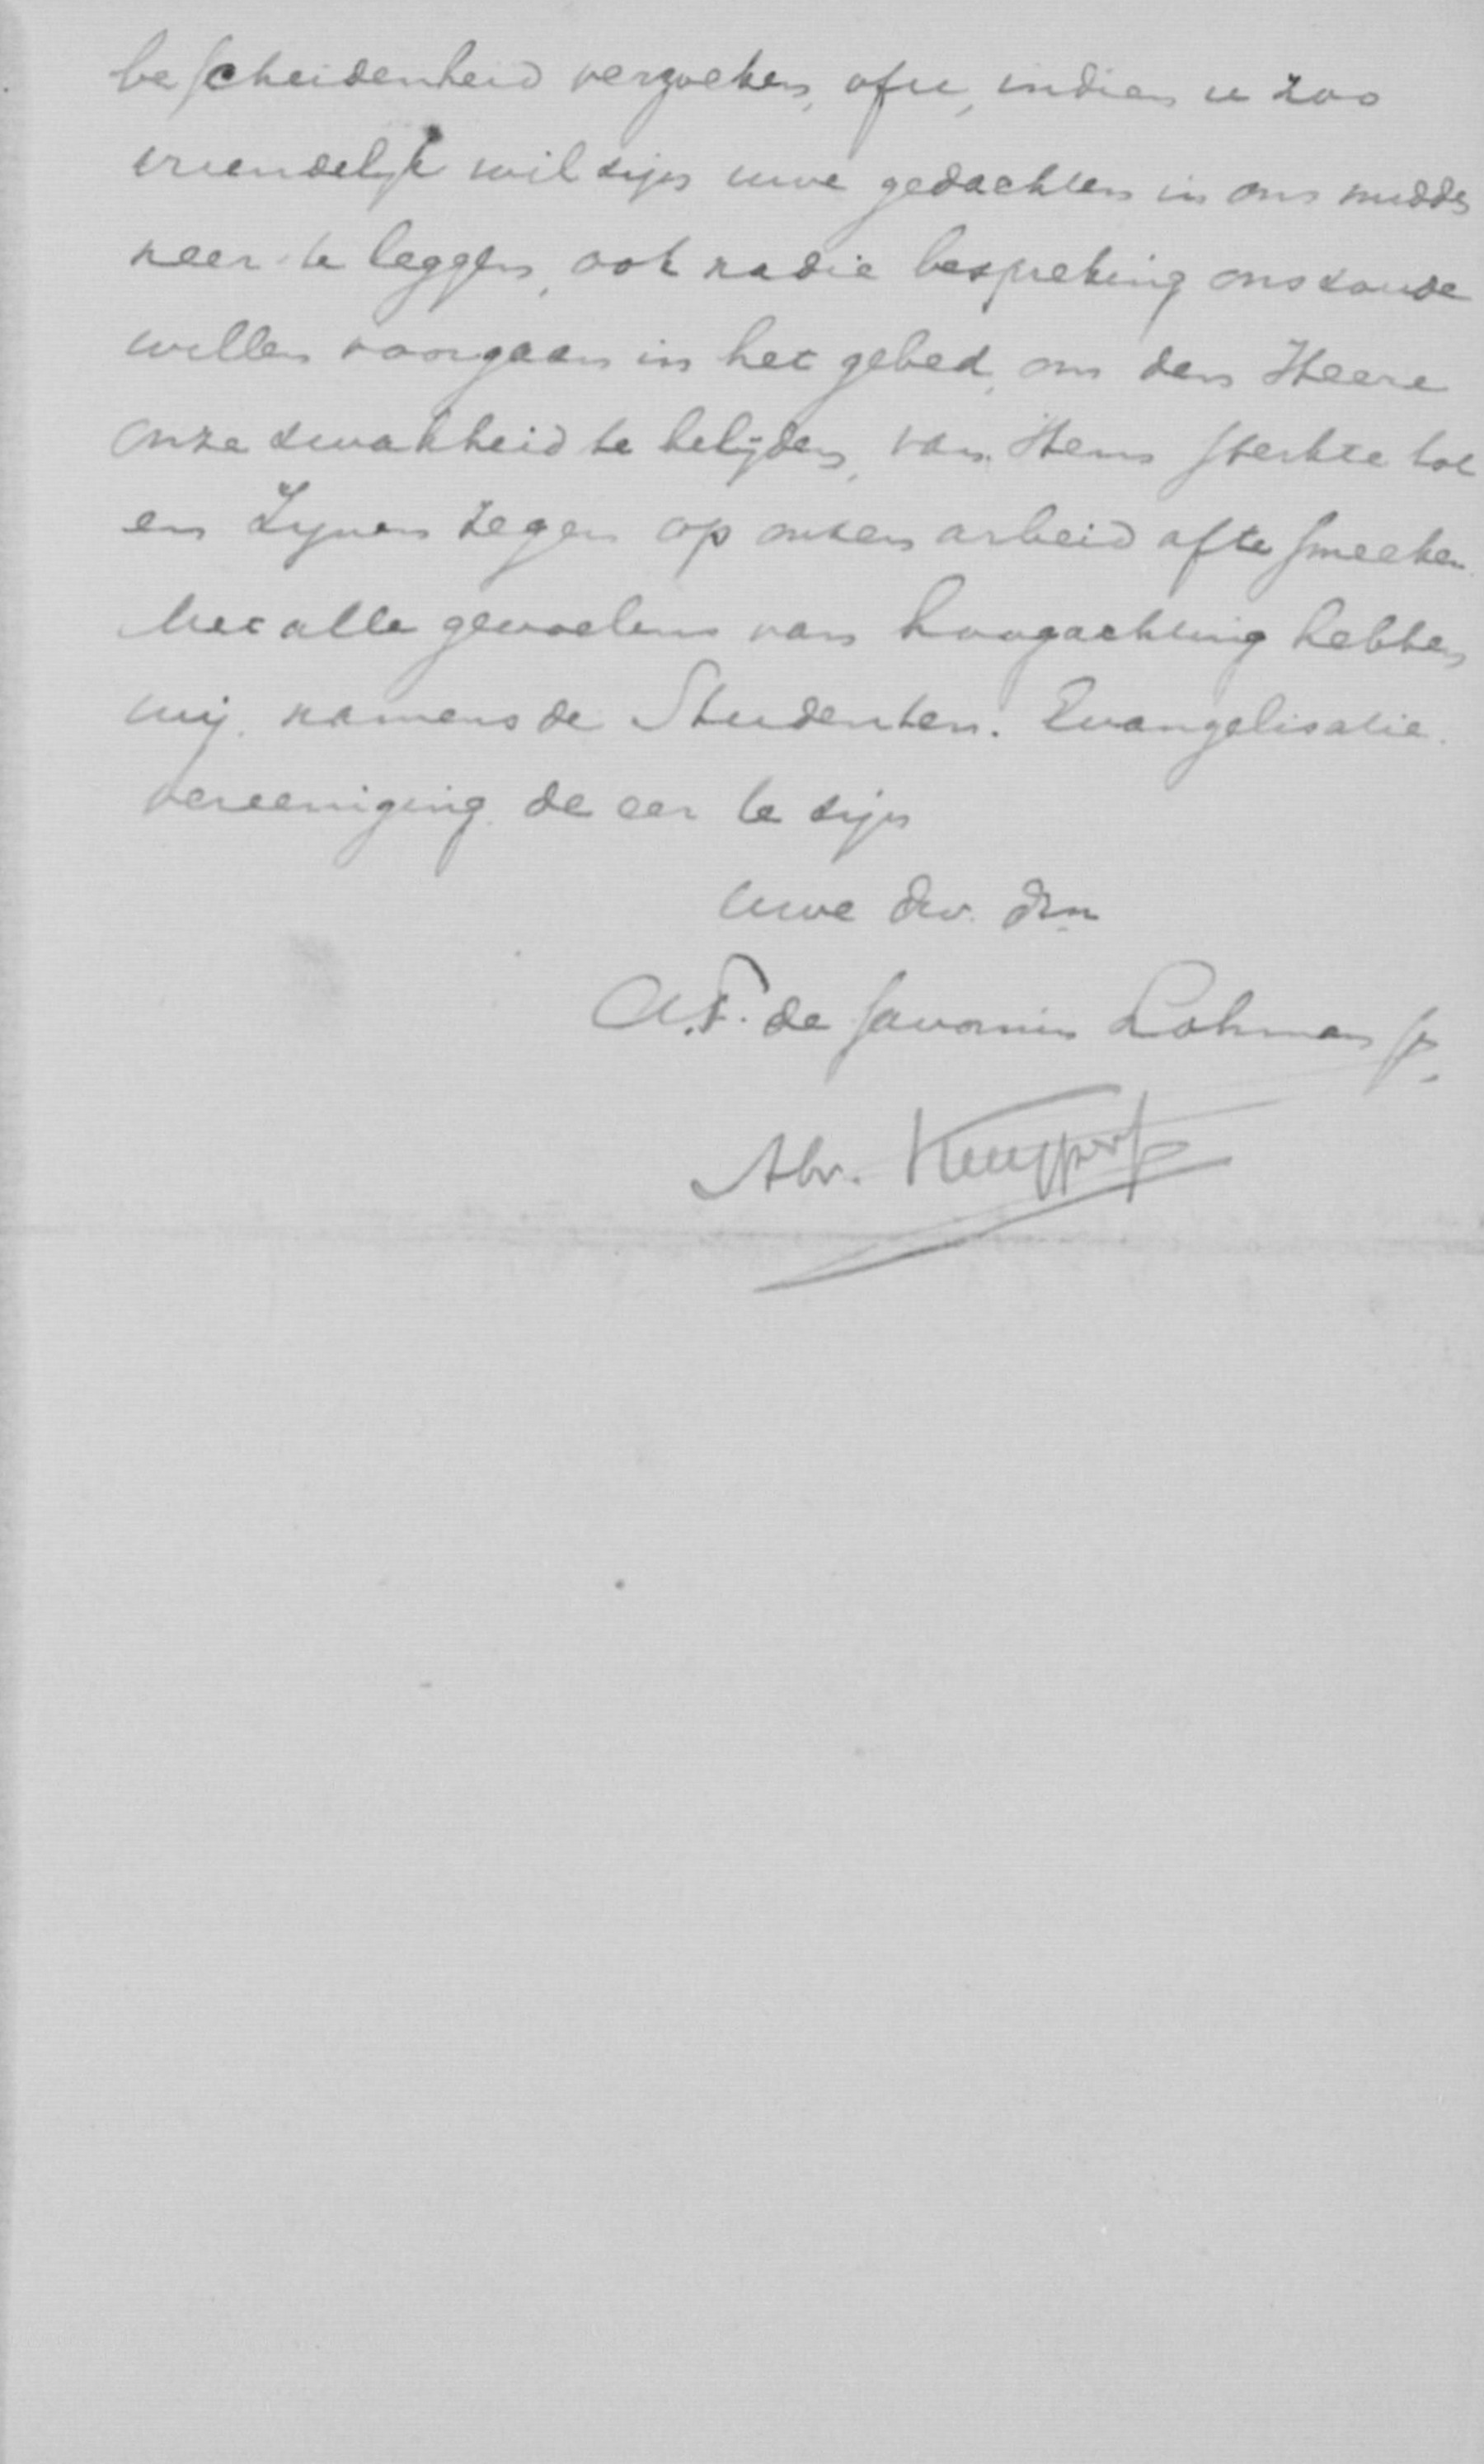 bescheidenheid verzoeken, of u, indien u zoo
vriendelijk wil zijn uwe gedachten in ons midden
neer te leggen, ook na die bespreking ons zoude
willen voorgaan in het gebed, om den Heere
onze zwakheid te belijden, van Hem sterkte tot
en Zijnen zegen op onzen arbeid af te smeeken.
Met alle gevoelens van hoogachting hebben
wij namens de Studenten-Evangelisatie-
vereeniging de eer te zijn
uwe dw. drn
A.F. de Savornin Lohman
Abr. Kuyper